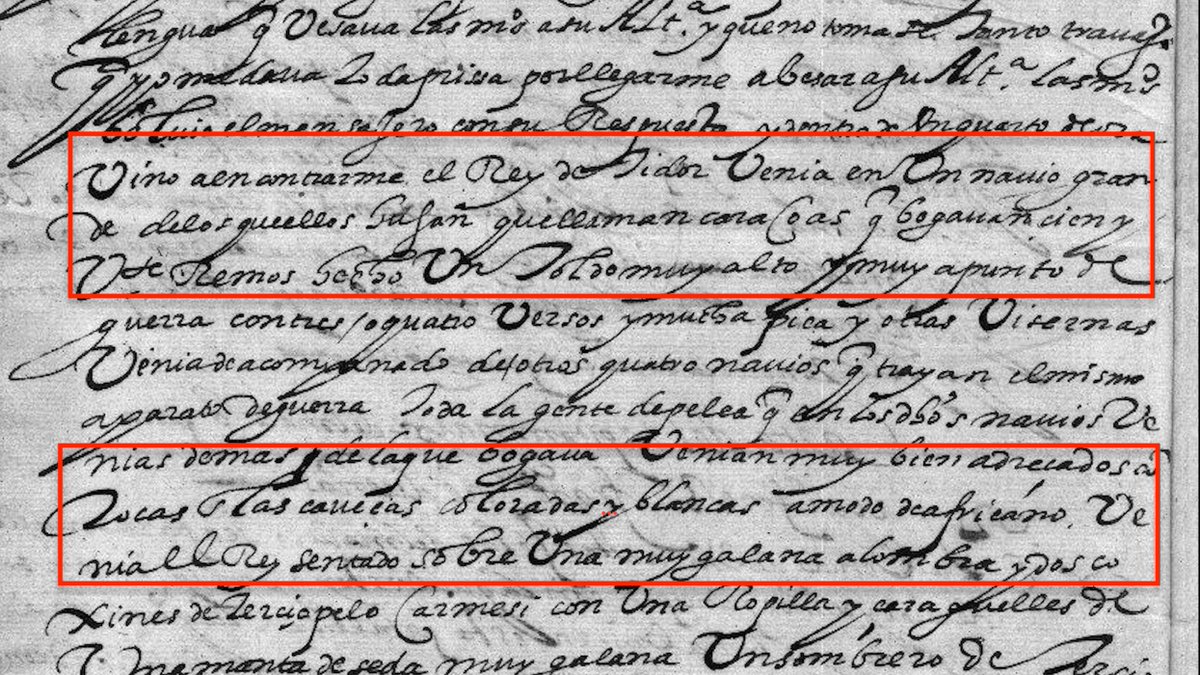 lengua q Vesava las mos a su Alta. y que no tomase tanto travajo
q yo me dava toda priesa por llegarme a besar a su Alta. las mos
el mensagero con su Respuesta y dentro de Un quarto de ora
Vino a encontrarme el Rey de Tidor Venia en Un navio gran
de de los que ellos Usan que llaman caracoas q bogavan cien y
Vte Remos hecho Un Toldo muy alto y muy a punto de
guerra con tres / o quatro Versos y mucha pica y otras
Venia de acompañado de otros quatro navios q trayan el mismo
aparato de guerra toda la gente de pelea q en los dhos navios Ve
nia demas de la que bogava Venian muy bien adreçados
tocas las caveças coloradas y blancas a modo de africano. Ve
nia ll Rey sentado sobre Una muy galana alombra y dos co
xines de terçiopelo Carmesi con Una Ropilla y caraguelles de
Una manta de seda muy galana Un sombrero de terçio